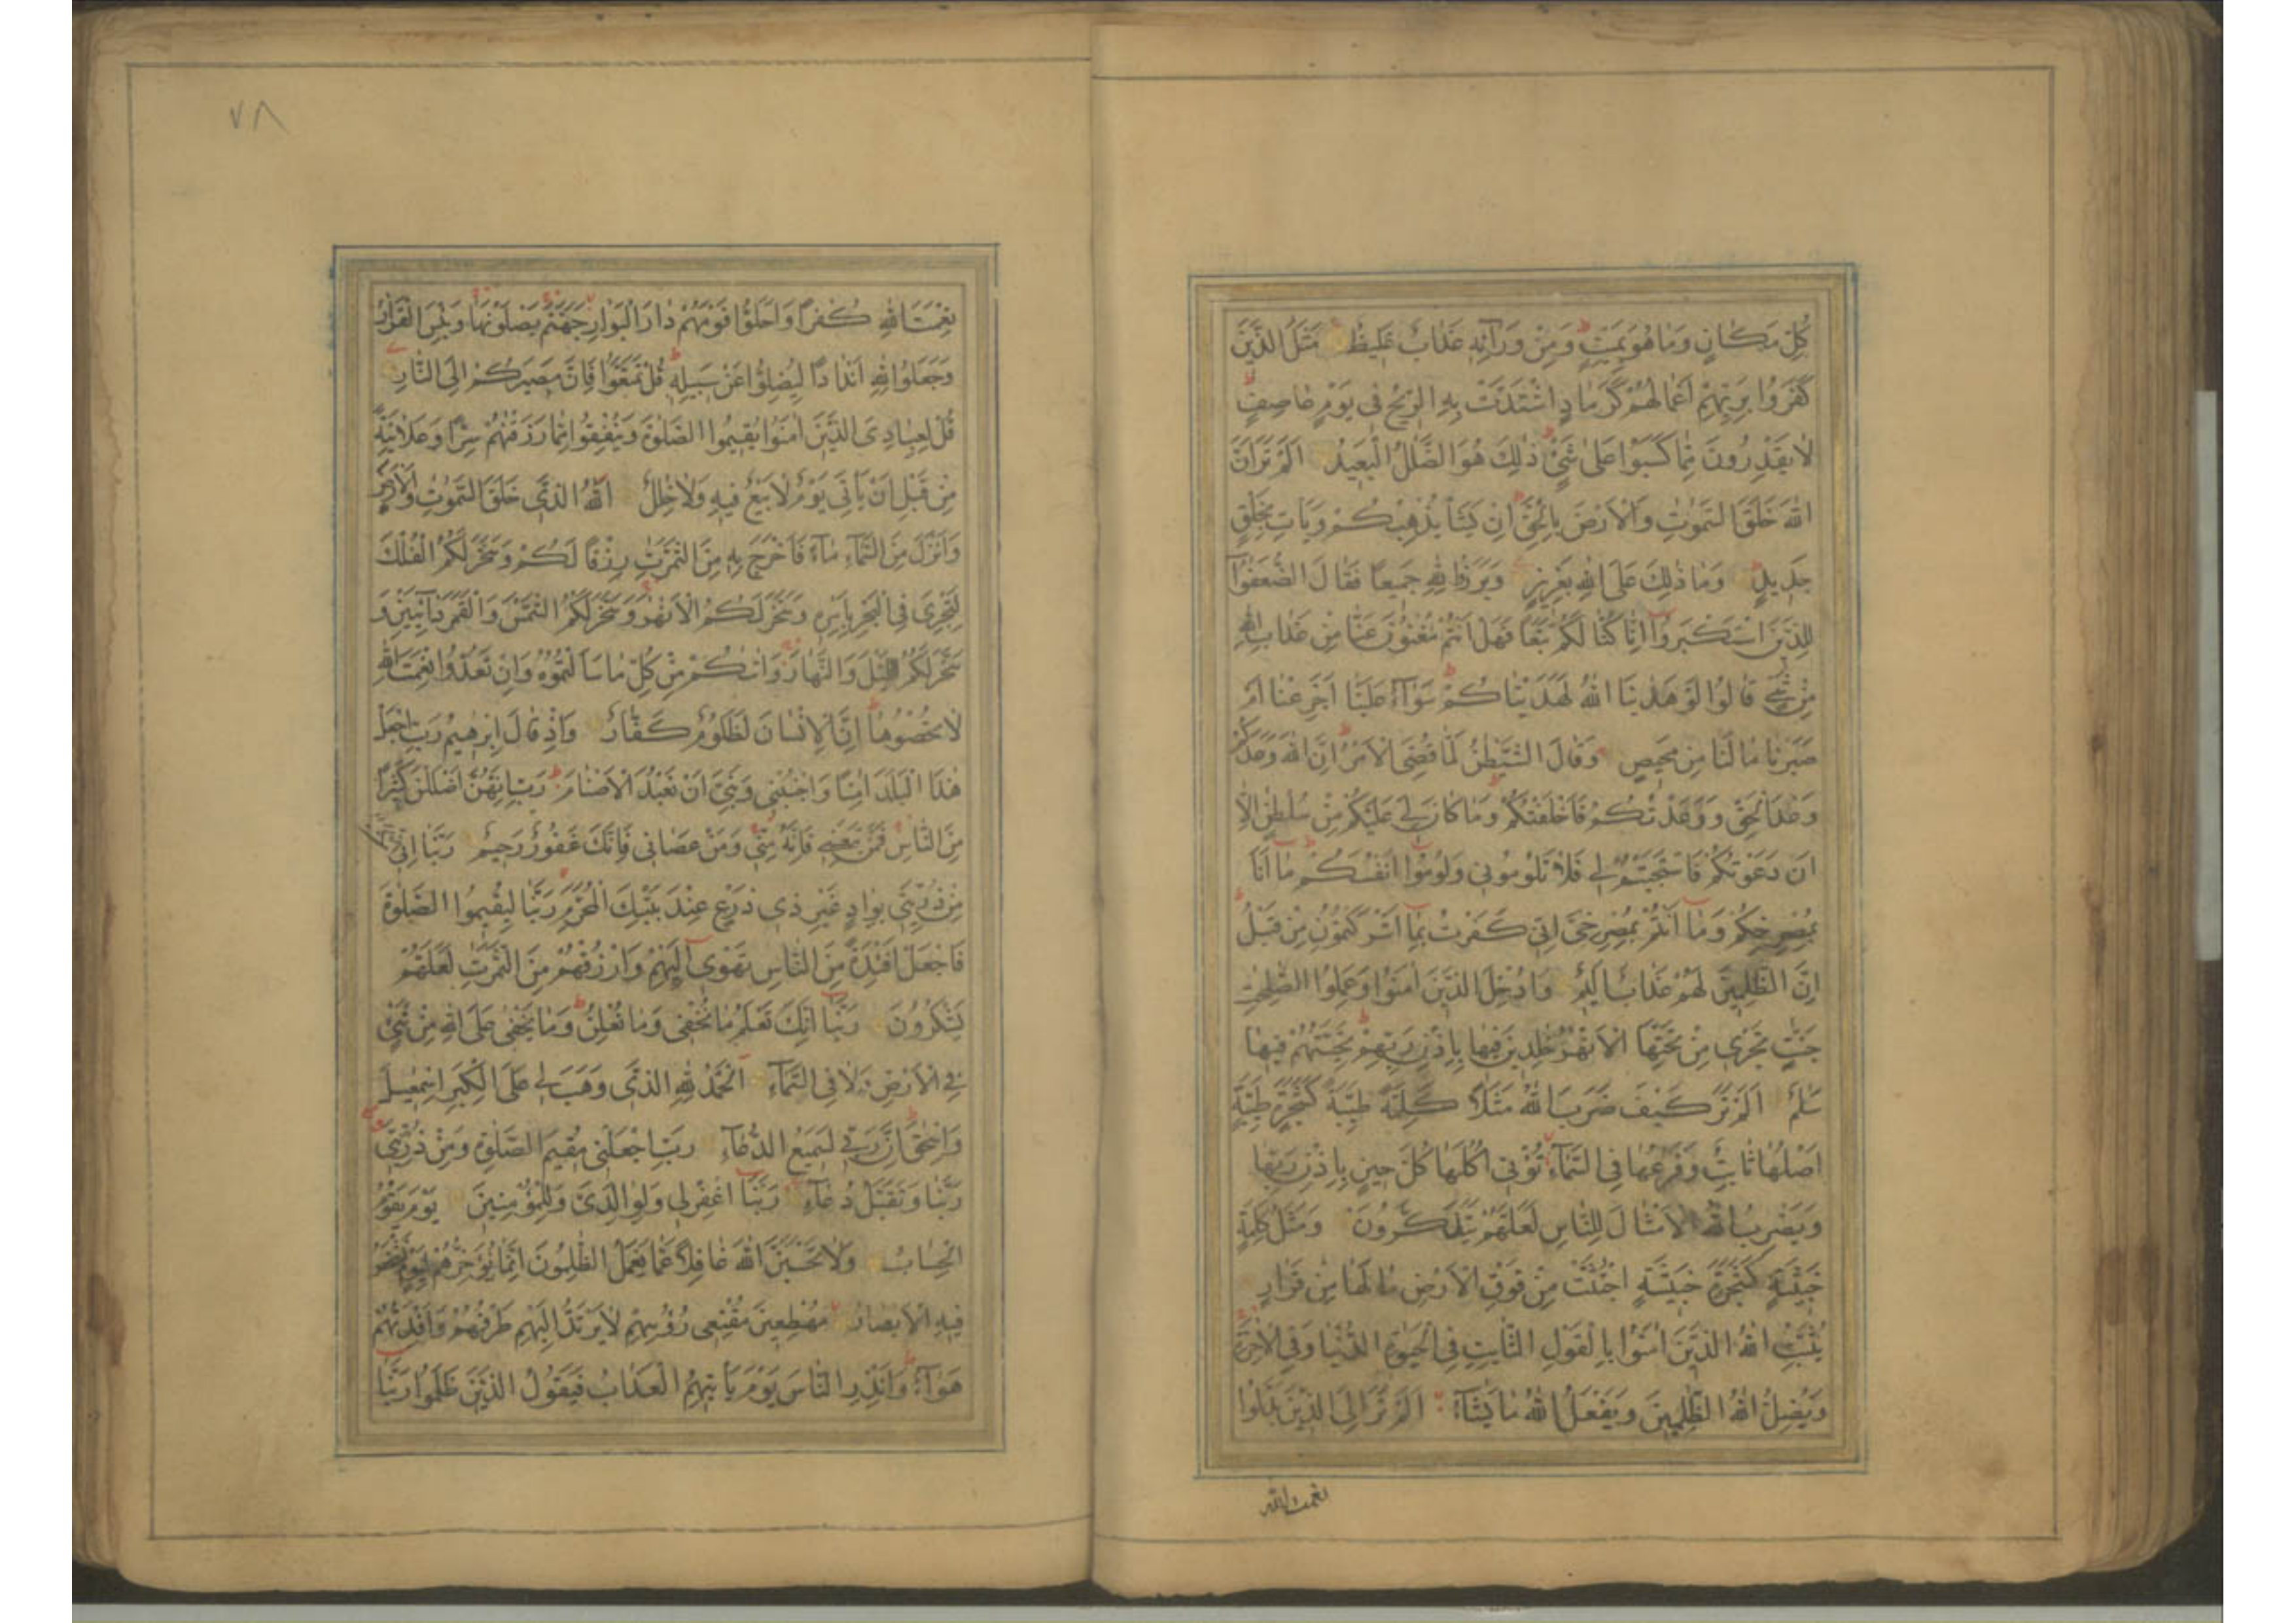 كُلِّ مَكَانٍ وَمَا هُوَ بِمَيِّتٍ وَمِنْ وَرَآئِهِ عَذَابٌ غَلِيظٌ مَثَلُ الَّذِينَ
كَفَرُوا بِرَبِّهِمْ اَعْمَالُهُمْ كَرَمَادٍ اشْتَدَّتْ بِهِ الرِّيحُ فِي يَوْمٍ عَاصِفٍ
لَا يَقْدِرُونَ مِمَّا كَسَبُوا عَلَى شَيْءٍ ذٰلِكَ هُوَ الضَّلٰلُ الْبَعِيدُ اَلَمْ تَرَ اَنَّ
اللّٰهَ خَلَقَ السَّمٰوٰتِ وَالْاَرْضَ بِالْحَقِّ اِنْ يَشَأْ يُذْهِبْكُمْ وَيَأْتِ بِخَلْقٍ
جَدِيدٍ وَمَا ذٰلِكَ عَلَى اللّٰهِ بِعَزِيزٍ وَبَرَزُوا لِلّٰهِ جَمِيعًا فَقَالَ الضُّعَفٰٓؤُا
لِلَّذِينَ اسْتَكْبَرُوٓا اِنَّا كُنَّا لَكُمْ تَبَعًا فَهَلْ اَنْتُمْ مُغْنُونَ عَنَّا مِنْ عَذَابِ اللّٰهِ
مِنْ شَيْءٍ قَالُوا لَوْ هَدٰينَا اللّٰهُ لَهَدَيْنَاكُمْ سَوَآءٌ عَلَيْنَا اَجَزِعْنَا اَمْ
صَبَرْنَا مَا لَنَا مِنْ مَحِيصٍ وَقَالَ الشَّيْطٰنُ لَمَّا قُضِيَ الْاَمْرُ اِنَّ اللّٰهَ وَعَدَكُمْ
وَعْدَ الْحَقِّ وَوَعَدْتُكُمْ فَاَخْلَفْتُكُمْ وَمَا كَانَ لِيَ عَلَيْكُمْ مِنْ سُلْطٰنٍ اِلَّا
اَنْ دَعَوْتُكُمْ فَاسْتَجَبْتُمْ لِي فَلَا تَلُومُونِي وَلُومُوٓا اَنْفُسَكُمْ مَا اَنَا
بِمُصْرِخِكُمْ وَمَآ اَنْتُمْ بِمُصْرِخِيَّ اِنِّي كَفَرْتُ بِمَآ اَشْرَكْتُمُونِ مِنْ قَبْلُ
اِنَّ الظّٰلِمِينَ لَهُمْ عَذَابٌ اَلِيمٌ وَاُدْخِلَ الَّذِينَ اٰمَنُوا وَعَمِلُوا الصّٰلِحٰتِ
جَنّٰتٍ تَجْرِي مِنْ تَحْتِهَا الْاَنْهٰرُ خٰلِدِينَ فِيهَا بِاِذْنِ رَبِّهِمْ تَحِيَّتُهُمْ فِيهَا
سَلٰمٌ اَلَمْ تَرَ كَيْفَ ضَرَبَ اللّٰهُ مَثَلًا كَلِمَةً طَيِّبَةً كَشَجَرَةٍ طَيِّبَةٍ
اَصْلُهَا ثَابِتٌ وَفَرْعُهَا فِي السَّمَآءِ تُؤْتِي اُكُلَهَا كُلَّ حِينٍ بِاِذْنِ رَبِّهَا
وَيَضْرِبُ اللّٰهُ الْاَمْثَالَ لِلنَّاسِ لَعَلَّهُمْ يَتَذَكَّرُونَ وَمَثَلُ كَلِمَةٍ
خَبِيثَةٍ كَشَجَرَةٍ خَبِيثَةٍ اجْتُثَّتْ مِنْ فَوْقِ الْاَرْضِ مَا لَهَا مِنْ قَرَارٍ
يُثَبِّتُ اللّٰهُ الَّذِينَ اٰمَنُوا بِالْقَوْلِ الثَّابِتِ فِي الْحَيٰوةِ الدُّنْيَا وَفِي الْاٰخِرَةِ
وَيُضِلُّ اللّٰهُ الظّٰلِمِينَ وَيَفْعَلُ اللّٰهُ مَا يَشَآءُ اَلَمْ تَرَ اِلَى الَّذِينَ بَدَّلُوا
نعمت الله
٧٨
نِعْمَتَ اللّٰهِ كُفْرًا وَاَحَلُّوا قَوْمَهُمْ دَارَ الْبَوَارِ جَهَنَّمَ يَصْلَوْنَهَا وَبِئْسَ الْقَرَارُ
وَجَعَلُوا لِلّٰهِ اَنْدَادًا لِيُضِلُّوا عَنْ سَبِيلِهِ قُلْ تَمَتَّعُوا فَاِنَّ مَصِيرَكُمْ اِلَى النَّارِ
قُلْ لِعِبَادِيَ الَّذِينَ اٰمَنُوا يُقِيمُوا الصَّلٰوةَ وَيُنْفِقُوا مِمَّا رَزَقْنٰهُمْ سِرًّا وَعَلَانِيَةً
مِنْ قَبْلِ اَنْ يَأْتِيَ يَوْمٌ لَا بَيْعٌ فِيهِ وَلَا خِلٰلٌ اَللّٰهُ الَّذِي خَلَقَ السَّمٰوٰتِ وَالْاَرْضَ
وَاَنْزَلَ مِنَ السَّمَآءِ مَآءً فَاَخْرَجَ بِهِ مِنَ الثَّمَرٰتِ رِزْقًا لَكُمْ وَسَخَّرَ لَكُمُ الْفُلْكَ
لِتَجْرِيَ فِي الْبَحْرِ بِاَمْرِهِ وَسَخَّرَ لَكُمُ الْاَنْهٰرَ وَسَخَّرَ لَكُمُ الشَّمْسَ وَالْقَمَرَ دَآئِبَيْنِ وَ
سَخَّرَ لَكُمُ اللَّيْلَ وَالنَّهَارَ وَاٰتٰىكُمْ مِنْ كُلِّ مَا سَاَلْتُمُوهُ وَاِنْ تَعُدُّوا نِعْمَتَ اللّٰهِ
لَا تُحْصُوهَا اِنَّ الْاِنْسَانَ لَظَلُومٌ كَفَّارٌ وَاِذْ قَالَ اِبْرٰهِيمُ رَبِّ اجْعَلْ
هٰذَا الْبَلَدَ اٰمِنًا وَاجْنُبْنِي وَبَنِيَّ اَنْ نَعْبُدَ الْاَصْنَامَ رَبِّ اِنَّهُنَّ اَضْلَلْنَ كَثِيرًا
مِنَ النَّاسِ فَمَنْ تَبِعَنِي فَاِنَّهُ مِنِّي وَمَنْ عَصَانِي فَاِنَّكَ غَفُورٌ رَحِيمٌ رَبَّنَا اِنِّي
مِنْ ذُرِّيَّتِي بِوَادٍ غَيْرِ ذِي زَرْعٍ عِنْدَ بَيْتِكَ الْمُحَرَّمِ رَبَّنَا لِيُقِيمُوا الصَّلٰوةَ
فَاجْعَلْ اَفْئِدَةً مِنَ النَّاسِ تَهْوِيٓ اِلَيْهِمْ وَارْزُقْهُمْ مِنَ الثَّمَرٰتِ لَعَلَّهُمْ
يَشْكُرُونَ رَبَّنَآ اِنَّكَ تَعْلَمُ مَا نُخْفِي وَمَا نُعْلِنُ وَمَا يَخْفٰى عَلَى اللّٰهِ مِنْ شَيْءٍ
فِي الْاَرْضِ وَلَا فِي السَّمَآءِ اَلْحَمْدُ لِلّٰهِ الَّذِي وَهَبَ لِي عَلَى الْكِبَرِ اِسْمٰعِيلَ
وَاِسْحٰقَ اِنَّ رَبِّي لَسَمِيعُ الدُّعَآءِ رَبِّ اجْعَلْنِي مُقِيمَ الصَّلٰوةِ وَمِنْ ذُرِّيَّتِي
رَبَّنَا وَتَقَبَّلْ دُعَآءِ رَبَّنَا اغْفِرْ لِي وَلِوَالِدَيَّ وَلِلْمُؤْمِنِينَ يَوْمَ يَقُومُ
الْحِسَابُ وَلَا تَحْسَبَنَّ اللّٰهَ غَافِلًا عَمَّا يَعْمَلُ الظّٰلِمُونَ اِنَّمَا يُؤَخِّرُهُمْ لِيَوْمٍ تَشْخَصُ
فِيهِ الْاَبْصَارُ مُهْطِعِينَ مُقْنِعِي رُؤُسِهِمْ لَا يَرْتَدُّ اِلَيْهِمْ طَرْفُهُمْ وَاَفْئِدَتُهُمْ
هَوَآءٌ وَاَنْذِرِ النَّاسَ يَوْمَ يَأْتِيهِمُ الْعَذَابُ فَيَقُولُ الَّذِينَ ظَلَمُوا رَبَّنَا